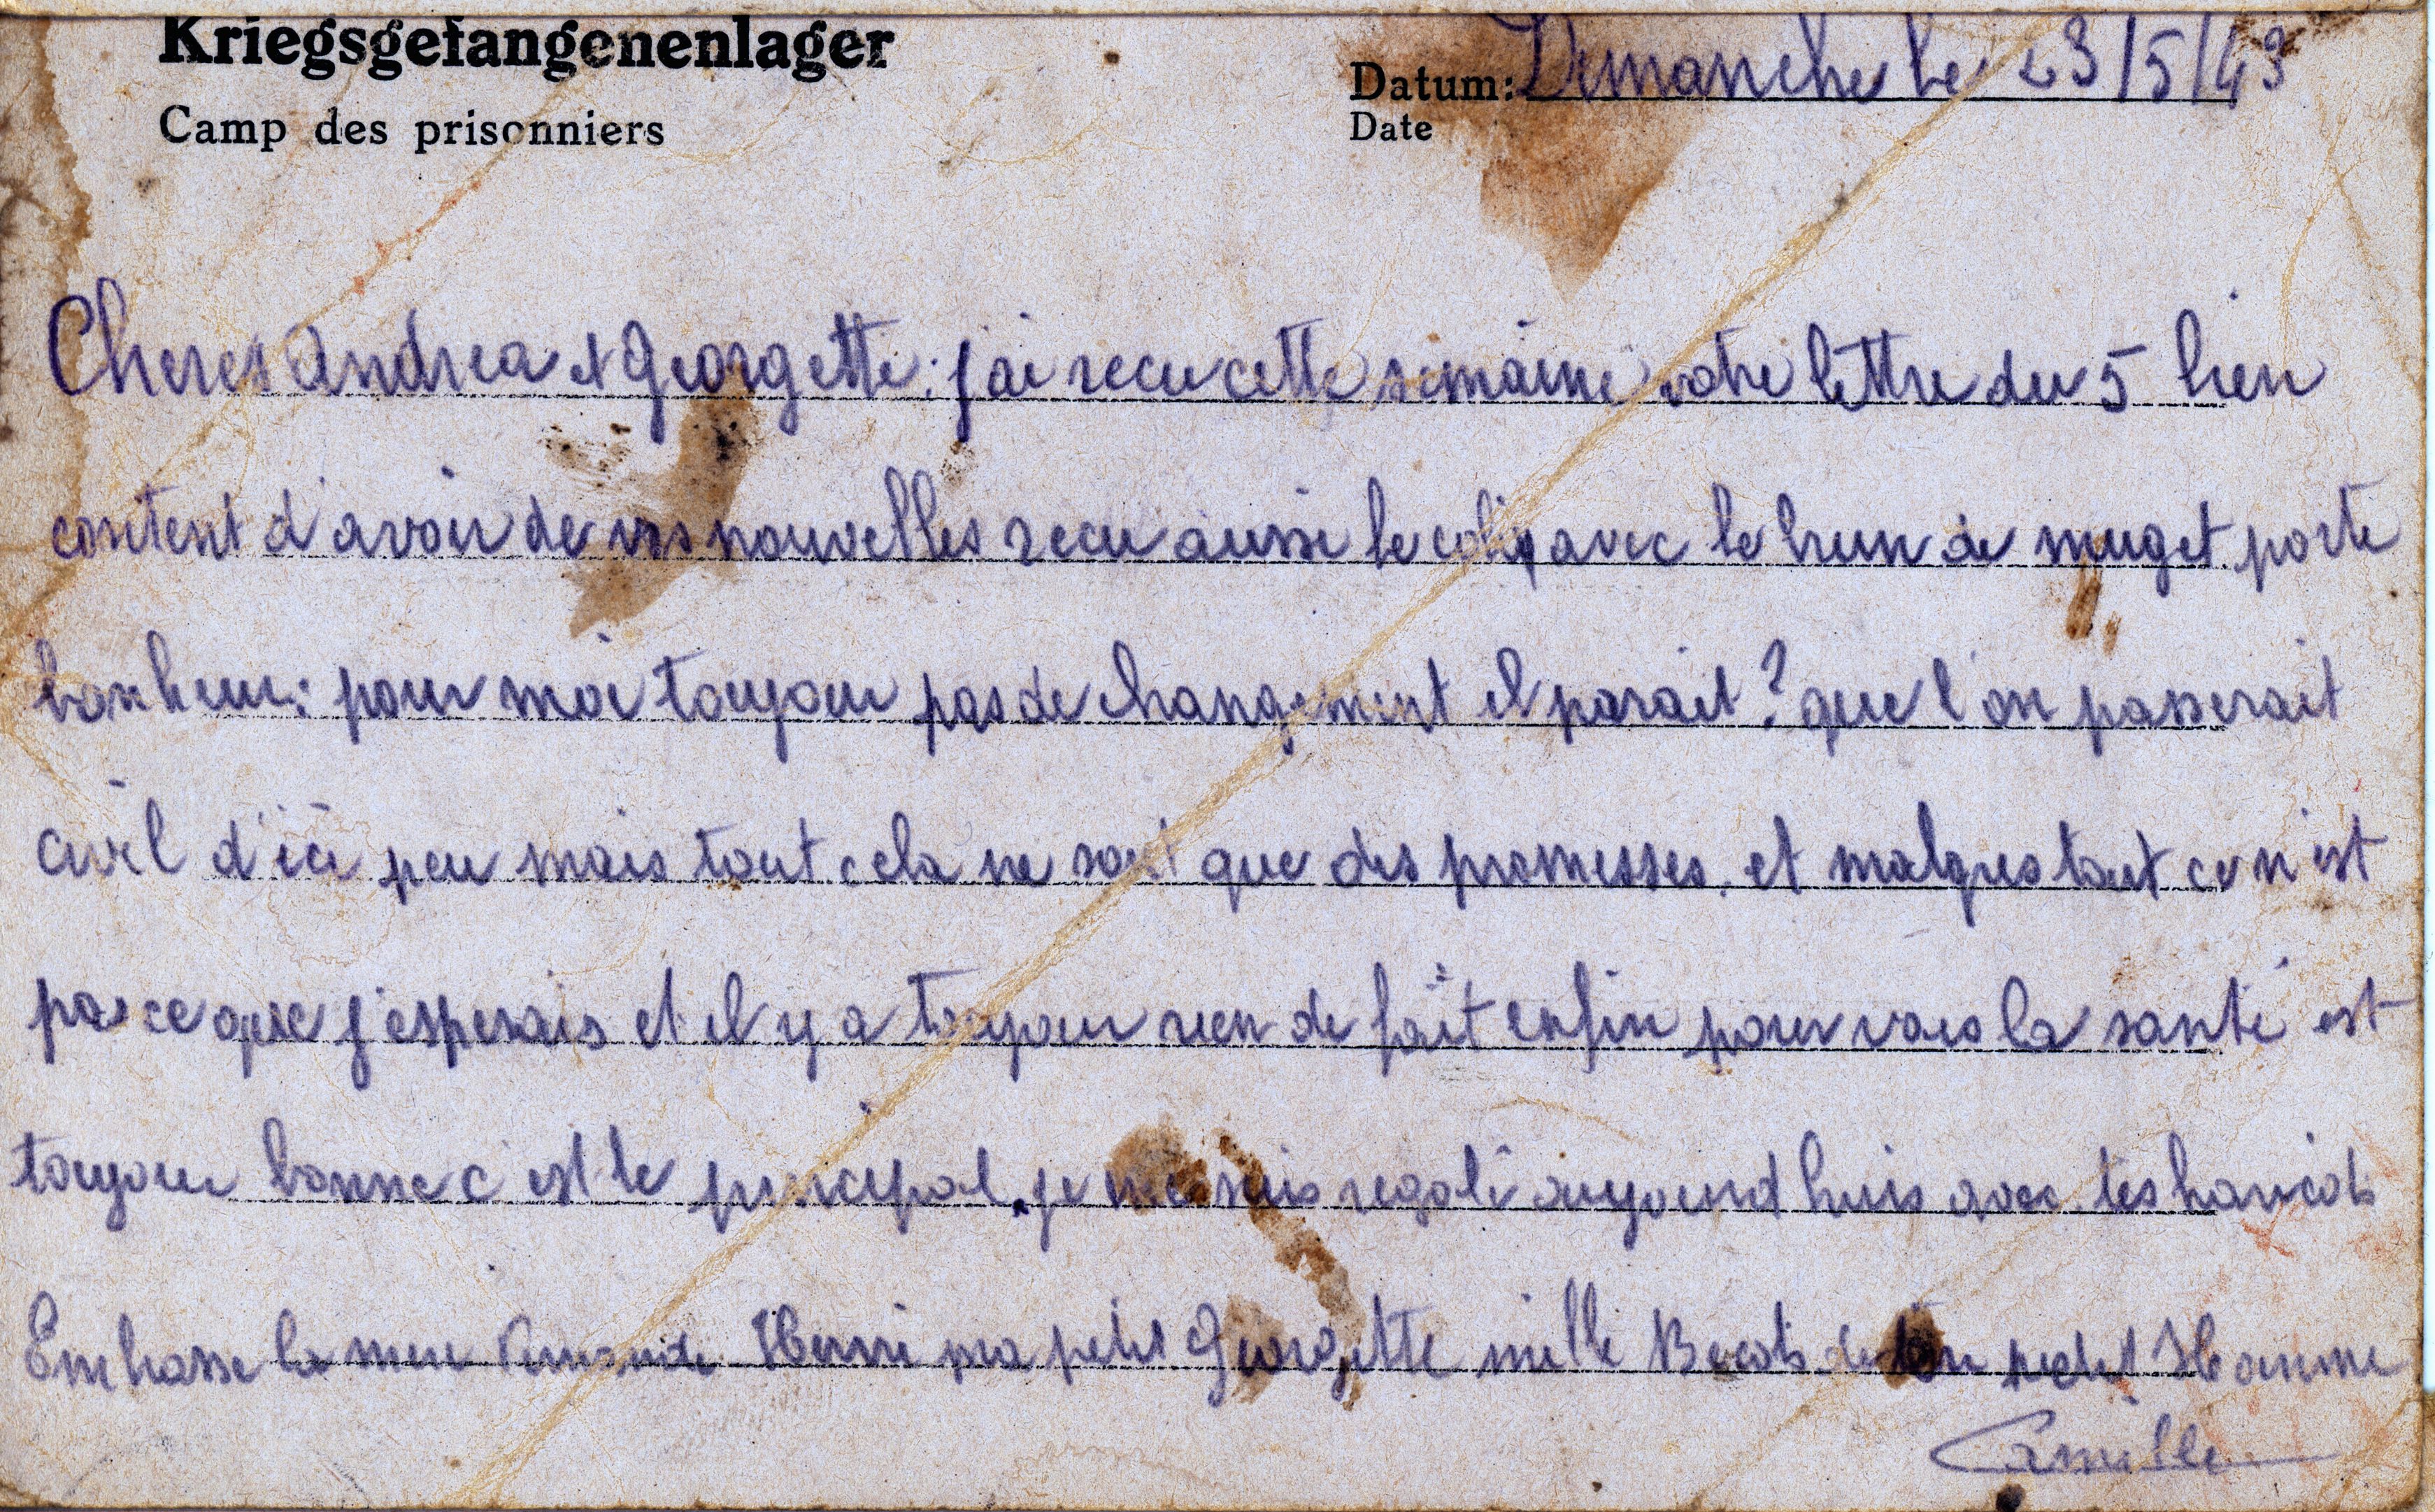 Kriegsgefangenenlager
Camp des prisonniers
Datum: Dimanche le 23/5/43
Date
Cheres Andrea et Georgette: j'ai recu cette semaine votre lettre du 5 bien
content d'avoir de vos nouvelles recu aussi le colis avec le brun de muget porte
bonheur: pour moi toujour pas de changement il parait? que l'on passerait
civil d'ici peu mais tout cela ne sont que des promesses. et malgres tout ce n'est
pas ce que j'esperais et il y a toujour rien de fait enfin pour vous la santé est
toujour bonne c'est le principal. je me suis regalé aujourd huis avec les haricots
Embrasse la mere Henri ma petit Georgette mille Becots de ton petit Homme
Camille